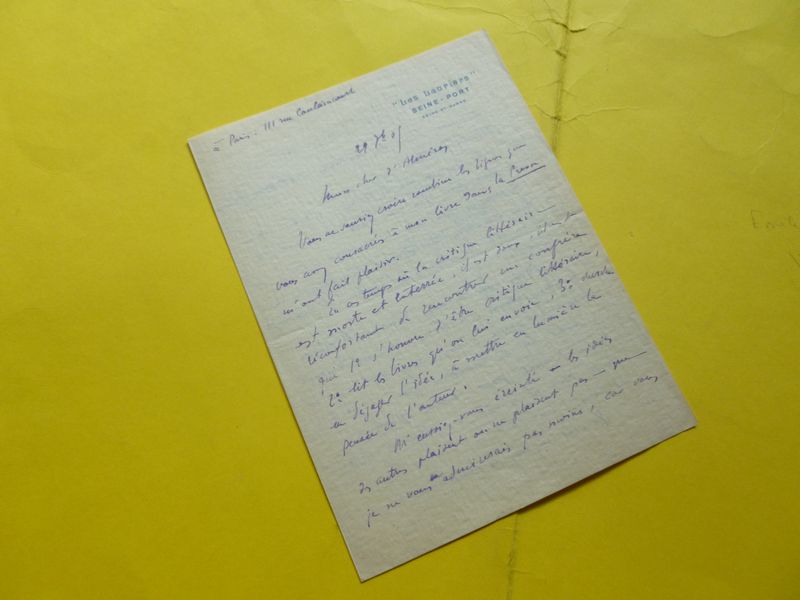 = Paris : 111 rue Caulaincourt
"Les Lauriers"
SEINE-PORT
SEINE-ET-MARNE
29
Mon cher d'Alméras
Vous ne sauriez croire combien les lignes que
vous avez consacrées à mon livre dans la Presse
m'ont fait plaisir.
En ces temps où la critique littéraire
est morte et enterrée, il est doux,
réconfortant de rencontrer un confrère
qui 1º, s'honore d'être critique littéraire,
2º lit les livres qu'on lui envoie, 3º
en dégager l'idée, à mettre en lumière la
pensée de l'auteur.
M'eussiez-vous éreinté — les idées
des autres plaisent ou ne plaisent pas — que
je ne vous admirerais pas moins, car vous